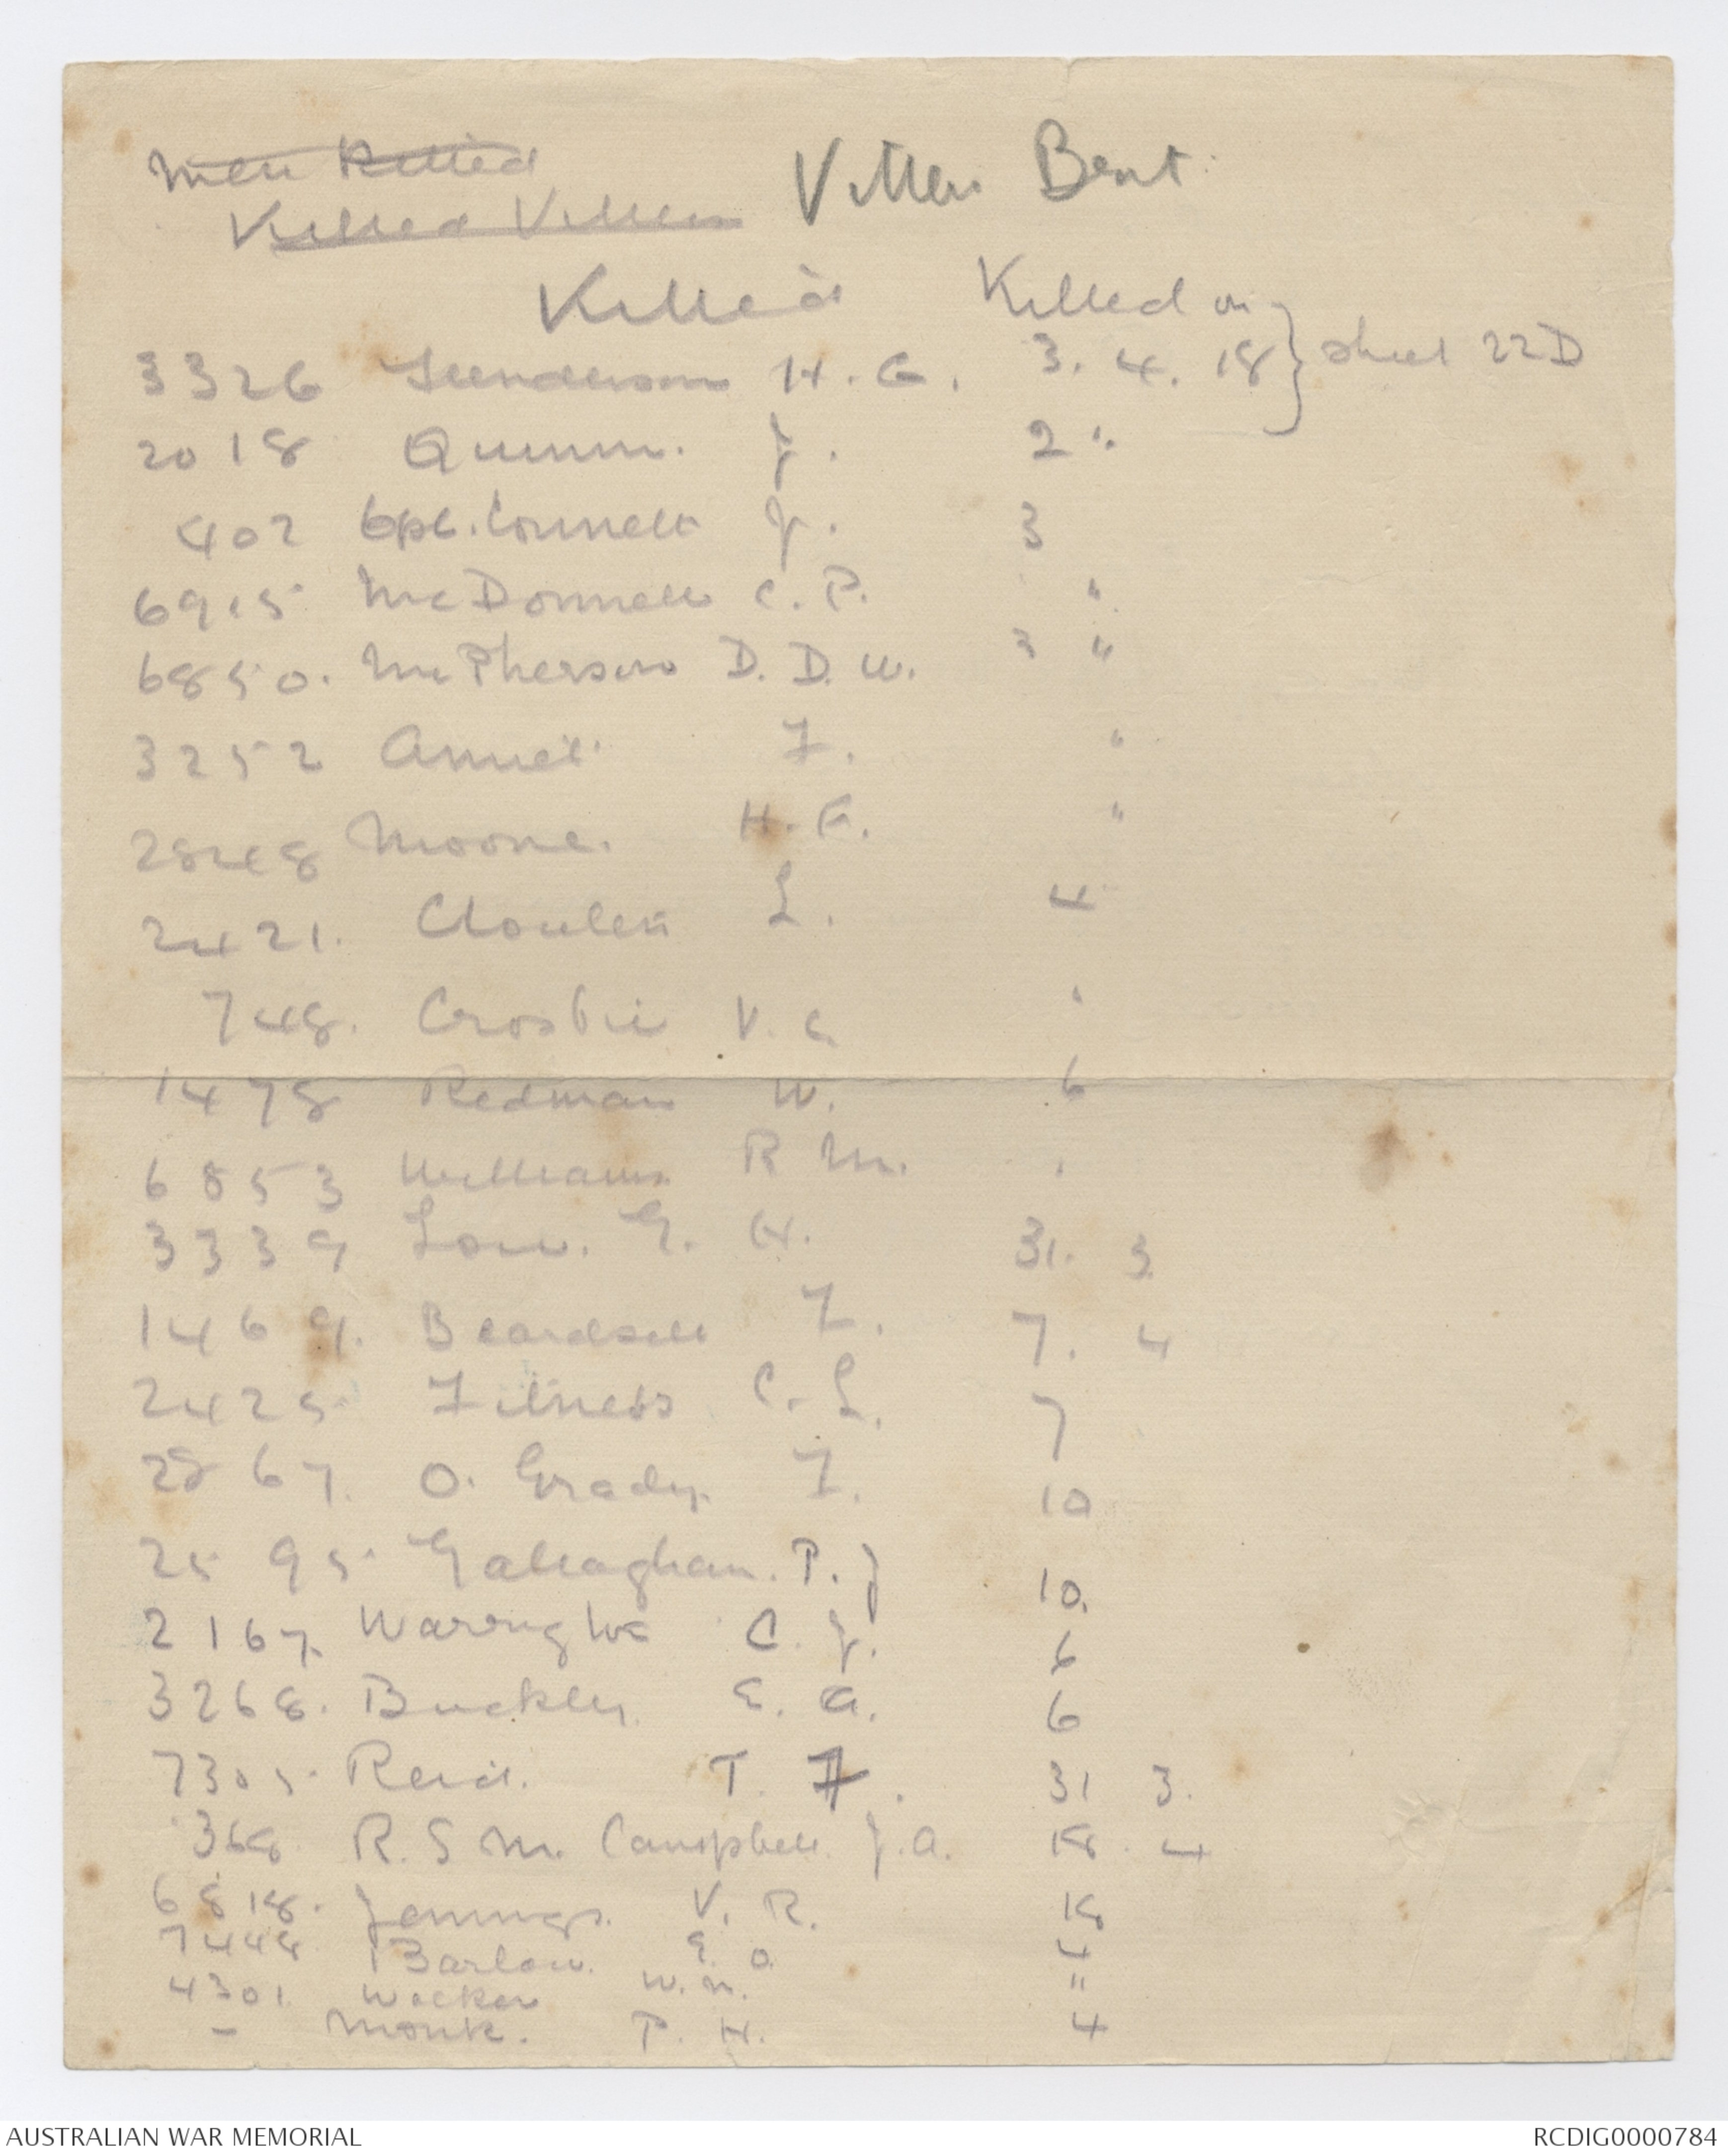 Men Killed
Killed Villers Villers Bent.
Killed Killed on
3326 Henderson H. G. 3. 4. 18 } sheet 22D
2018 Quinn. J. 2 "
402 Cpl. Connell J. 3
6915 McDonnell C. P. "
6850. McPherson D. D. W. 3 "
3252 Annett F. "
2848 Moore. H. G. "
2421. L. 4
748. Crosbie V. C. "
1478 Redman W. 6
6853 Williams R M. "
3339 Low. G. H. 31. 3
1469. Beardsell F. 7. 4
2425 Fitness C. L. 7
2867. O. Grady F. 10
2595 Gallaghan. P. J 10.
2167. C. J. 6
3268. Buckley E. A. 6
7305. Reid. T. F. 31 3.
368 R. S. M. Campbell J. A. 18. 4
6818. Jennings. V. R. 18
7444 Barlow. E. O. 4
4301 Walker W. N. "
- Monk. P. H. 4
AUSTRALIAN WAR MEMORIAL RCDIG0000784